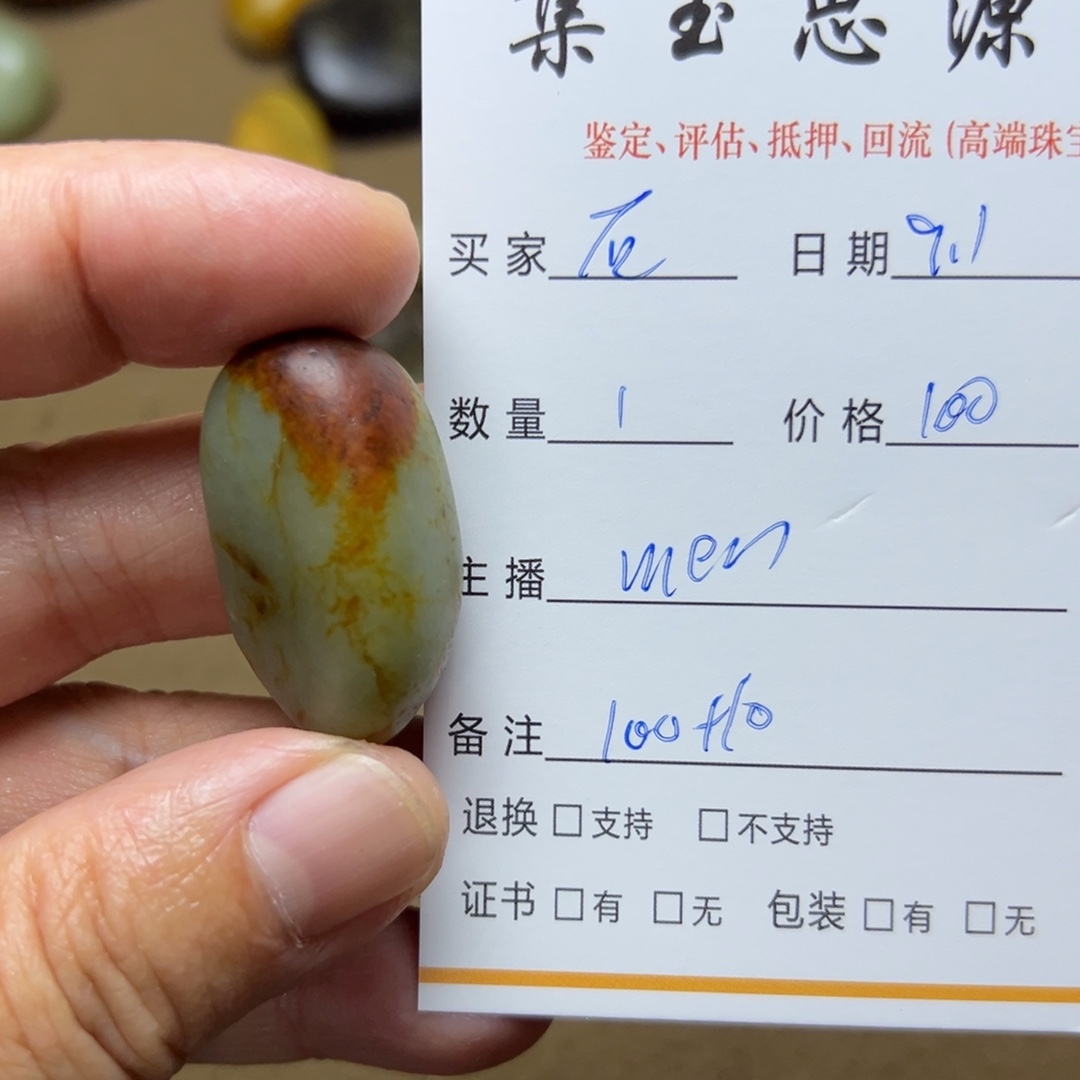 集玉思源
鉴定、评估、抵押、回流(高端珠宝
买家 日期 9.1
数量 1 价格 100
主播 men
备注 100+10
退换 □支持 □不支持
证书 □有 □无 包装 □有 □无